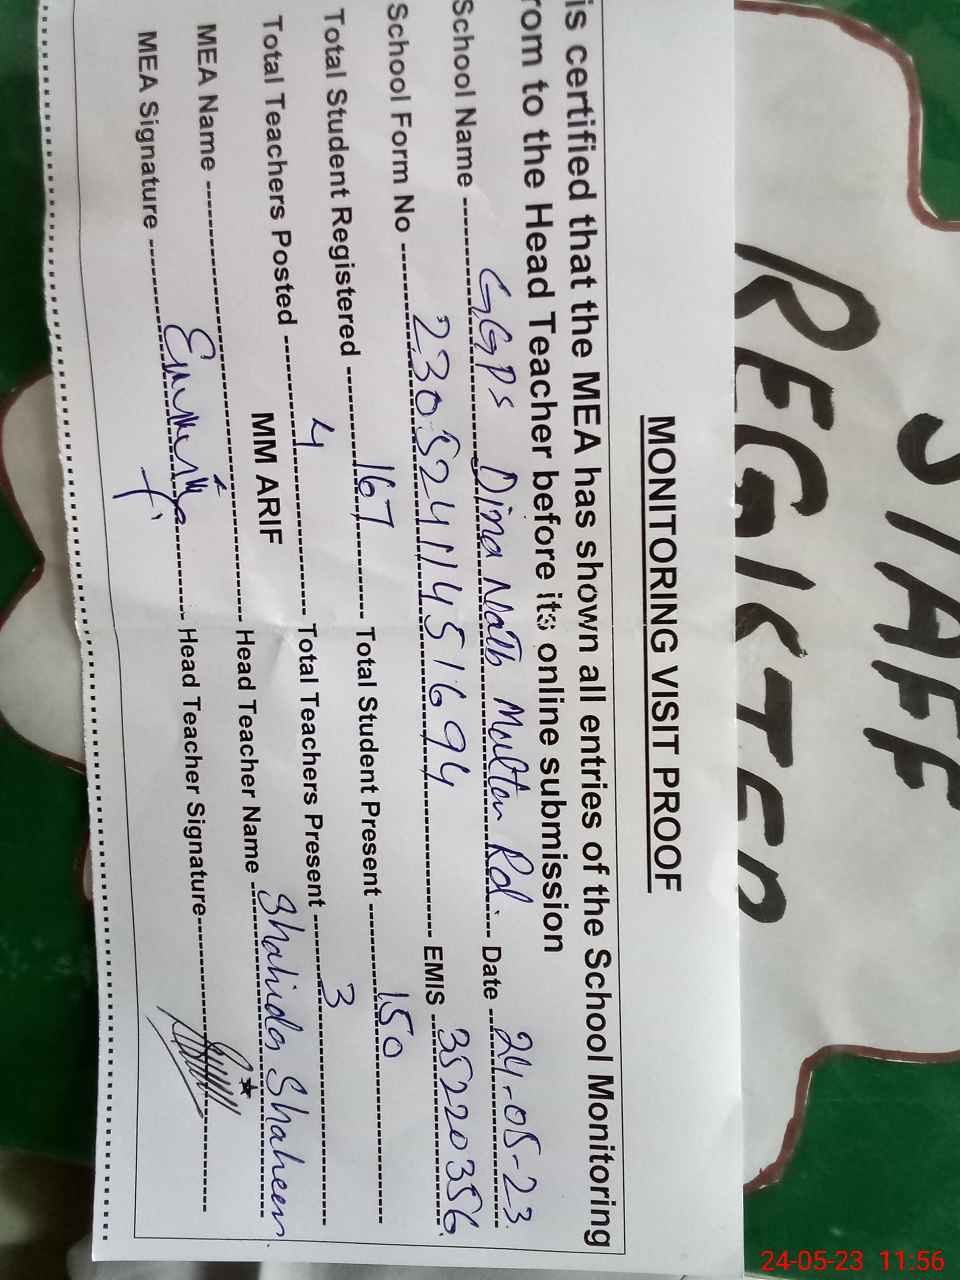 STAFF
REGISTER
MONITORING VISIT PROOF
is certified that the MEA has shown all entries of the School Monitoring
rom to the Head Teacher before its online submission
School Name GGPS Dina Nath Multan Rd. Date 24-05-23
School Form No 230524114451694 EMIS 35220356
Total Student Registered 167 Total Student Present 150
Total Teachers Posted 4 Total Teachers Present 3
MEA Name MM ARIF Head Teacher Name Shahida Shaheen
MEA Signature Head Teacher Signature
24-05-23 11:56